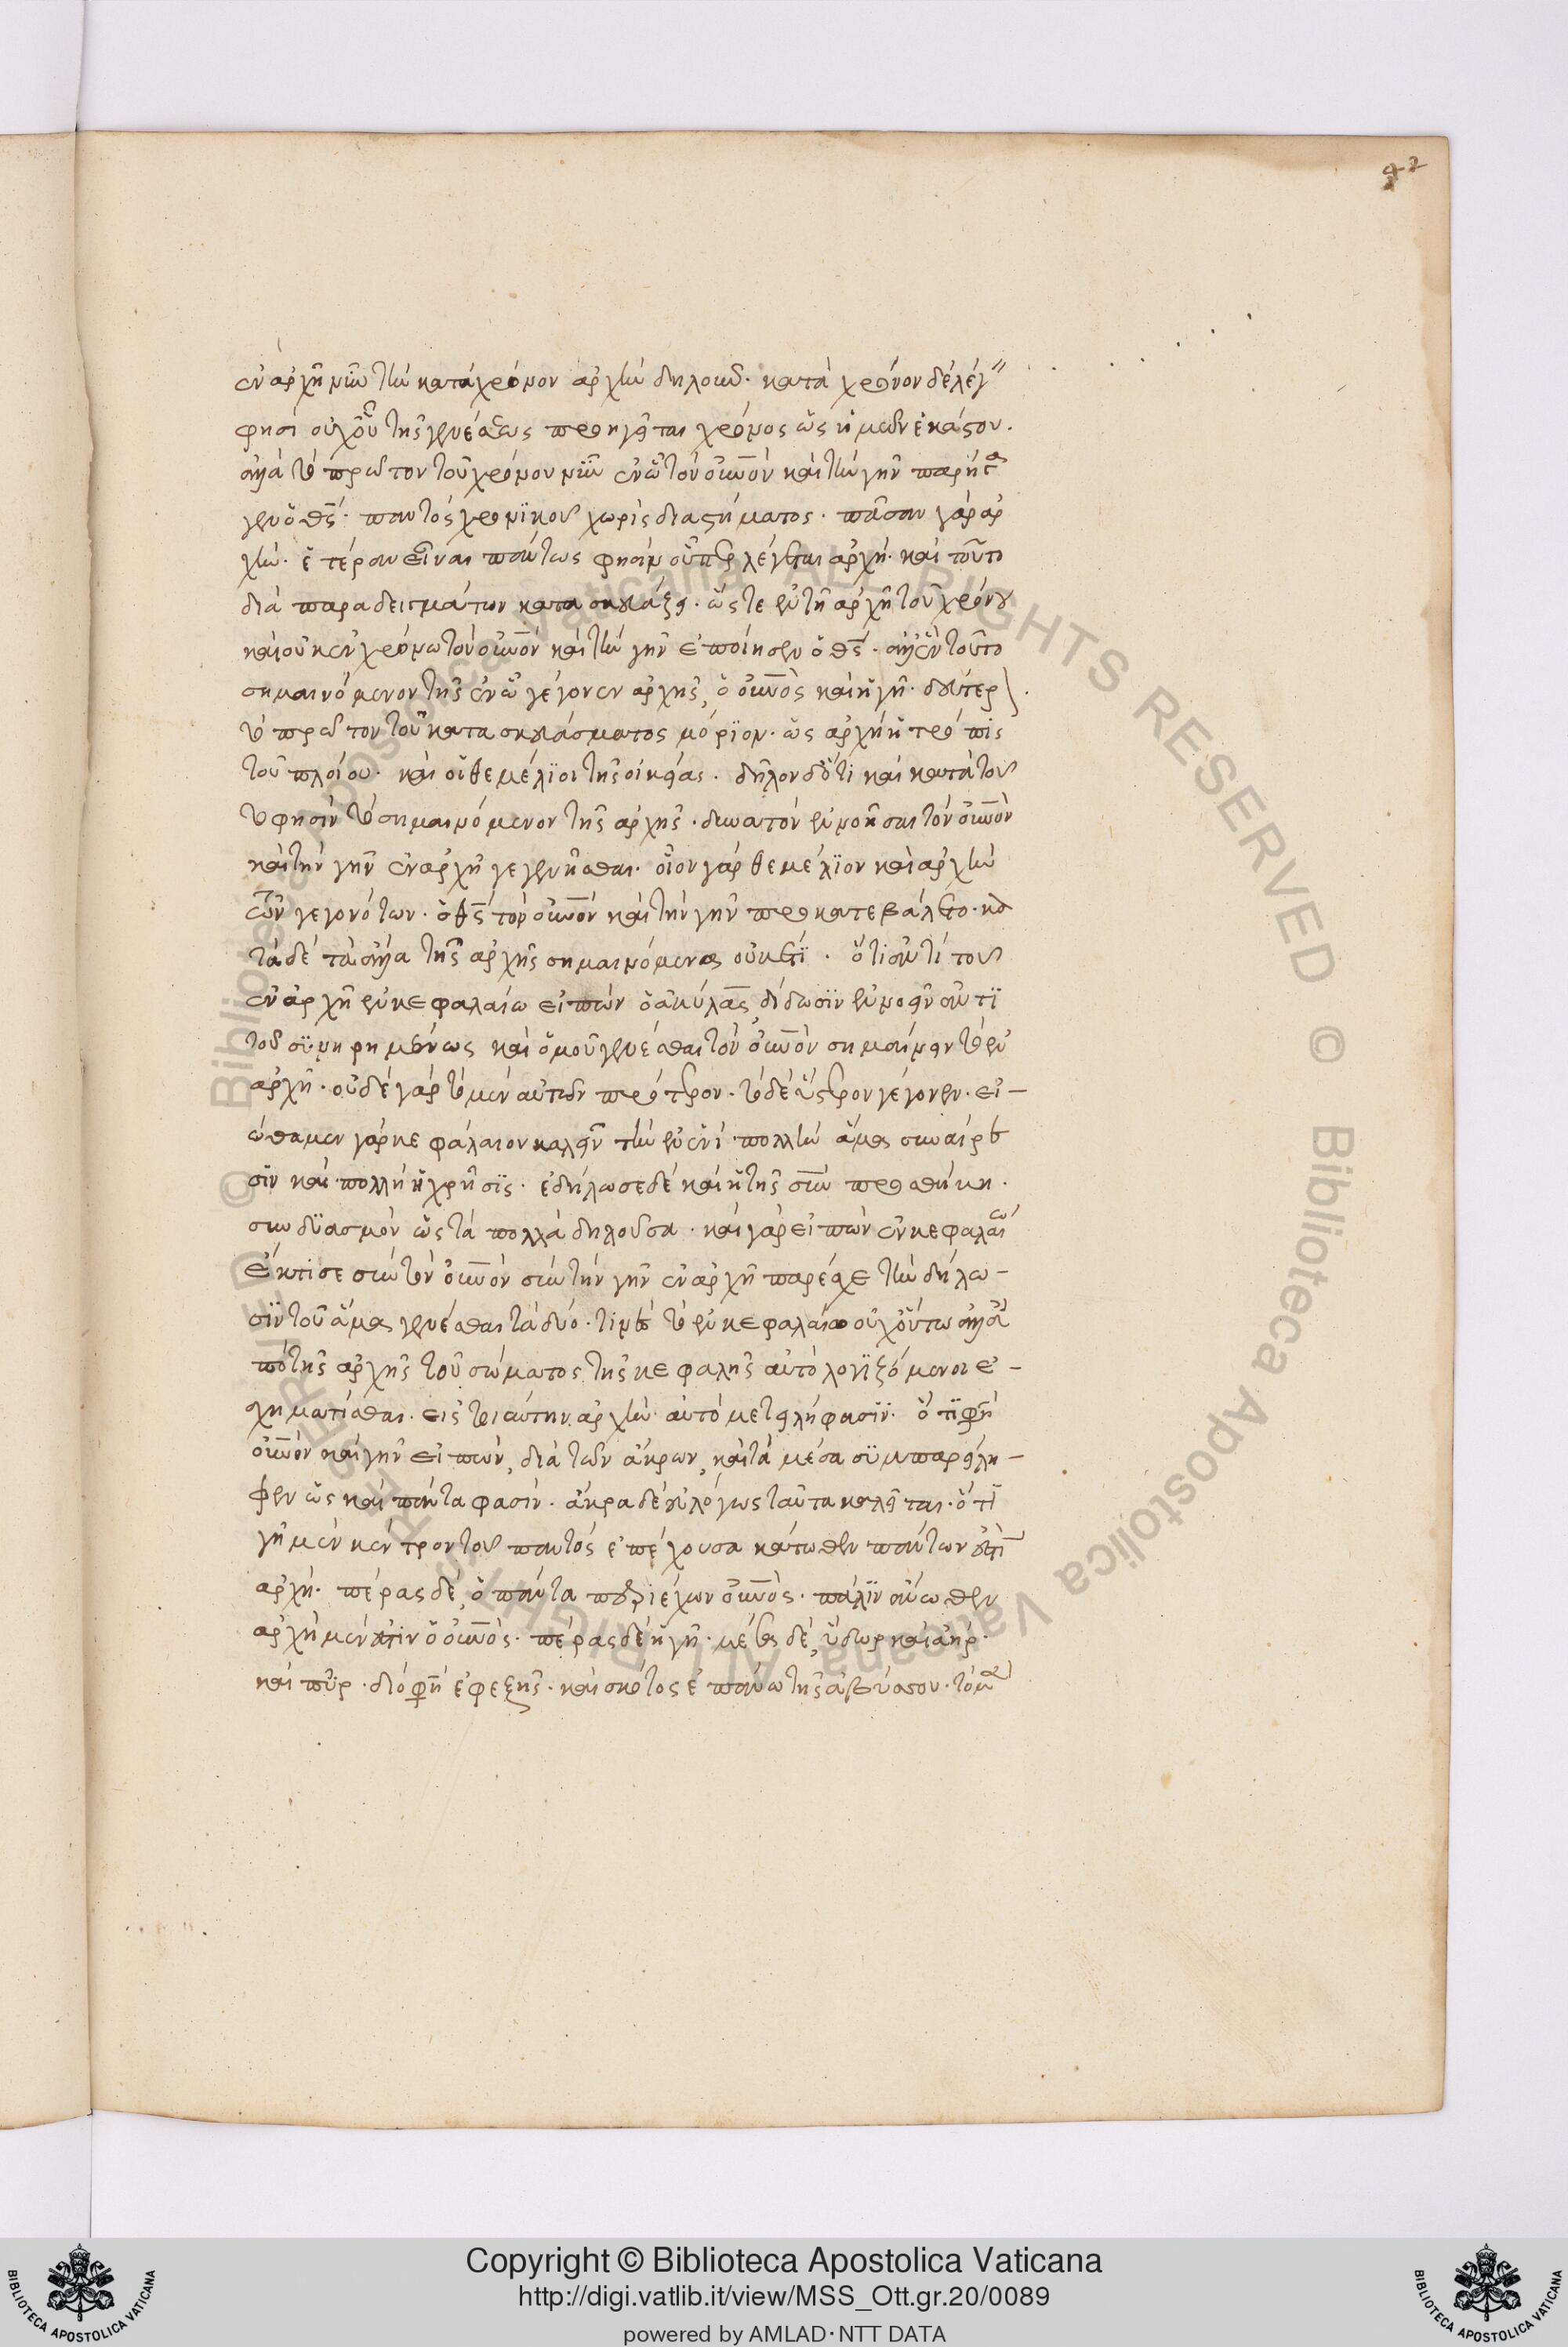 42
ἐν ἀρχῆ νῦν τὴν κατὰ χρόνον ἀρχὴν δηλοῦν. κατὰ χρόνον δὲ λέγ
φησὶ οὐχ οὗ τῆς γενέσεως προηγεῖται χρόνος ὡς ἡμῶν ἑκάστου.
ἀλλὰ τὸ πρῶτον τοῦ χρόνου νῦν ἐν ᾧ τὸν οὐνὸν καὶ τὴν γῆν παρήγα
γεν ὁ θς. παντὸς χρονικοῦ χωρὶς διαστήματος. πᾶσαν γὰρ ἀρ
χὴν. ἑτέραν εἶναι πάντως φησὶν οὗπερ λέγεται ἀρχή. καὶ τοῦτο
διὰ παραδειγμάτων κατασκευάζει. ὥστε ἐν τῆ ἀρχῆ τοῦ χρόνου
καὶ οὐκ ἐν χρόνω τὸν οὐνὸν καὶ τὴν γῆν ἐποίησεν ὁ θς. ἀλλ' ἓν τοῦτο
σημαινόμενον τῆς ἐν ᾧ γέγονεν ἀρχῆς, ὁ οὐνὸς καὶ ἡ γῆ. δεύτερ
τὸ πρῶτον τοῦ κατασκευάσματος μόριον. ὡς ἀρχὴ ἡ τρόπις
τοῦ πλοίου. καὶ οἱ θεμέλιοι τῆς οἰκίας. δῆλον δ' ὅτι καὶ κατὰ τοῦ
τό φησιν τὸ σημαινόμενον τῆς ἀρχῆς. δυνατὸν ἐννοῆσαι τὸν οὐνὸν
καὶ τὴν γῆν ἐν ἀρχῆ γεγενῆσθαι. οἷον γὰρ θεμέλιον καὶ ἀρχὴν
τῶν γεγονότων. ὁ θς τὸν οὐνὸν καὶ τὴν γῆν προκατεβάλετο. κα
τὰ δὲ τὰ ἄλλα τῆς ἀρχῆς σημαινόμενα οὐκέτι. ὅτι ἀντὶ τοῦ
ἐν ἀρχῆ ἐν κεφαλαίω εἰπὼν ὁ ἀκύλας, δίδωσιν ἐννοεῖν ἀντὶ
τοῦ συνηρημένως καὶ ὁμοῦ γενέσθαι τὸν οὐνὸν σημαίνειν τὸ ἐν
ἀρχῆ. οὐδὲ γὰρ τὸ μὲν αὐτῶν πρότερον. τὸ δὲ ὕστερον γέγονεν. εἰ-
ώθαμεν γὰρ κεφάλαιον καλεῖν τὴν ἐν ἑνὶ πολλῶν ἅμα συναίρε
σιν καὶ πολλὴ ἡ χρῆσις. ἐδήλωσε δὲ καὶ ἡ τῆς σὺν προσθήκη.
συνδυασμὸν ὡς τὰ πολλὰ δηλοῦσα. καὶ γὰρ εἰπὼν ἐν κεφαλαίω
ἔκτισε σὺν τὸν οὐνὸν σὺν τὴν γῆν ἐν ἀρχῆ παρέσχε τὴν δήλω-
σιν τοῦ ἅμα γενέσθαι τὰ δύο. τινὲς τὸ ἐν κεφαλαίω οὐχ οὕτω ἀλλ' ἀ
πὸ τῆς ἀρχῆς τοῦ σώματος τῆς κεφαλῆς αὐτὸ λογιζόμενοι ἐ-
σχηματίσθαι. εἰς τοιαύτην ἀρχὴν. αὐτὸ μετειλήφασιν. ὅτι φησὶ
οὐνὸν καὶ γῆν εἰπὼν, διὰ τῶν ἄκρων, καὶ τὰ μέσα συμπαρείλη-
φεν ὡς καὶ πάντα φασίν. ἄκρα δὲ εὐλόγως ταῦτα καλεῖται. ὅτι
γῆ μὲν κέντρον τοῦ παντὸς ἐπέχουσα κάτωθεν πάντων ἐστὶ
ἀρχή. πέρας δὲ, ὁ πάντα περιέχων οὐνός. πάλιν ἄνωθεν
ἀρχὴ μέν ἐστιν ὁ οὐνὸς. πέρας δὲ ἡ γῆ. μέσα δὲ, ὕδωρ καὶ ἀὴρ.
καὶ πῦρ. διό φησι ἐφεξῆς. καὶ σκότος ἐπάνω τῆς ἀβύσσου.
Copyright © Biblioteca Apostolica Vaticana
http://digi.vatlib.it/view/MSS_Ott.gr.20/0089
powered by AMLAD·NTT DATA